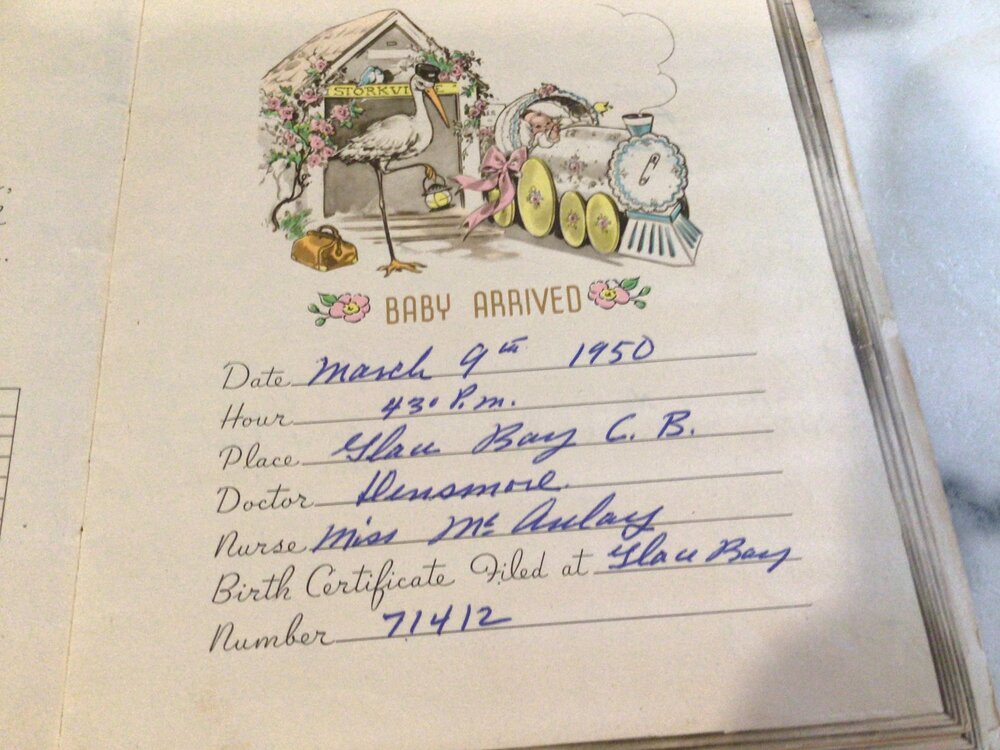 STORKVILLE
BABY ARRIVED
Date March 9th 1950
Hour 430 P.m.
Place Glace Bay C. B.
Doctor Densmore.
Nurse Miss Mc Aulay
Birth Certificate Filed at Glace Bay
Number 71412